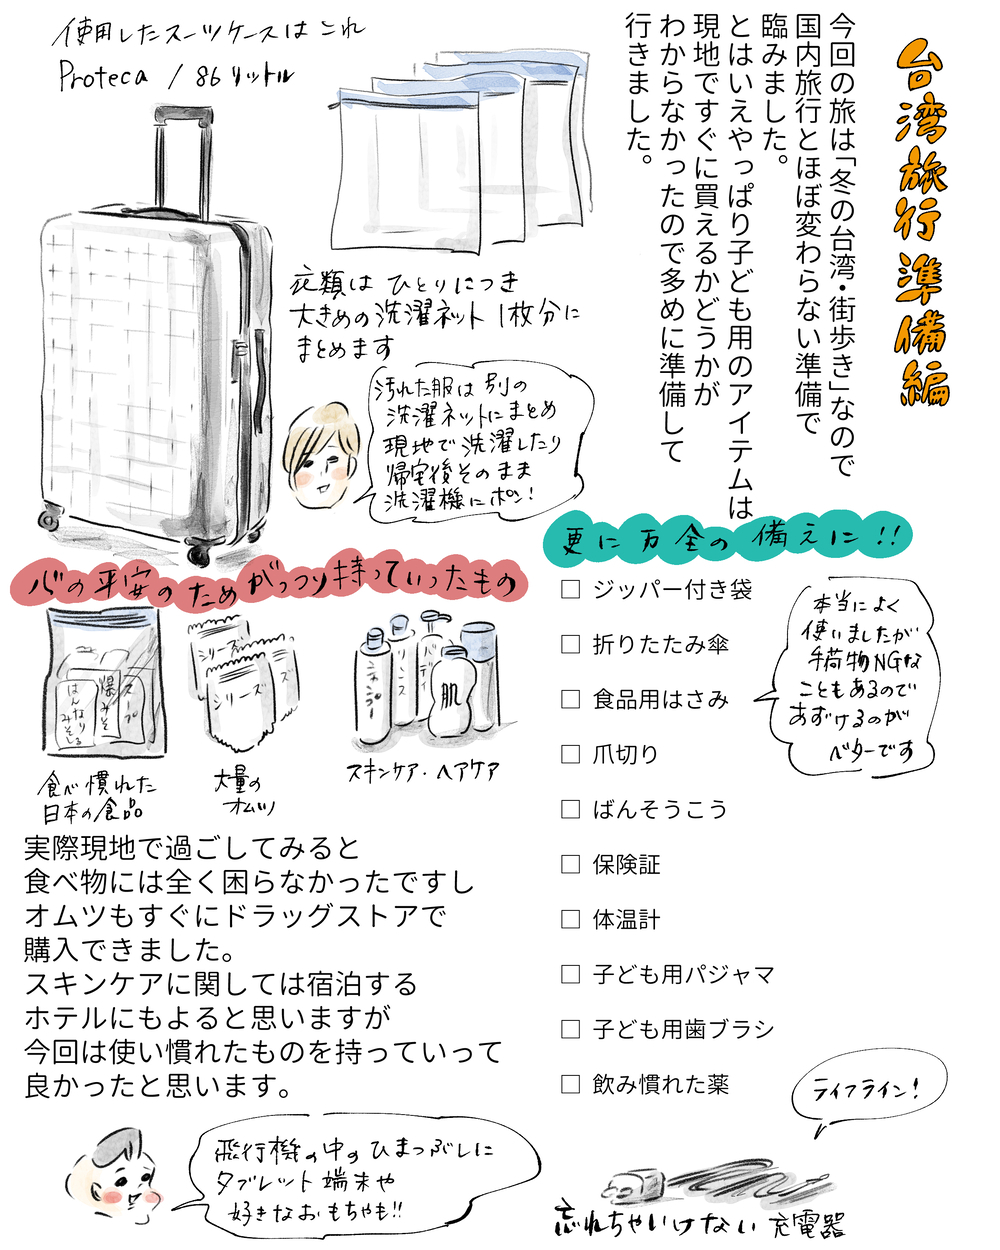 台湾旅行準備編
今回の旅は「冬の台湾・街歩き」なので
国内旅行とほぼ変わらない準備で
臨みました。
とはいえやっぱり子ども用のアイテムは
現地ですぐに買えるかどうかが
わからなかったので多めに準備して
行きました。
使用したスーツケースはこれ
Proteca / 86リットル
衣類は ひとりにつき
大きめの洗濯ネット 1枚分に
まとめます
汚れた服は 別の
洗濯ネットにまとめ
現地で洗濯したり
帰宅後そのまま
洗濯機にポン!
心の平安のためがっつり持っていったもの
スープ
爆みそ
はんなりるみそし
シリーズ
シリーズ
ズ
シャンプー
リンス
ボディ
肌
食べ慣れた
日本の食品
大量の
オムツ
スキンケア・ヘアケア
実際現地で過ごしてみると
食べ物には全く困らなかったですし
オムツもすぐにドラッグストアで
購入できました。
スキンケアに関しては宿泊する
ホテルにもよると思いますが
今回は使い慣れたものを持っていって
良かったと思います。
飛行機の中のひまつぶしに
タブレット端末や
好きなおもちゃも!!
更に万全の備えに!!
□ ジッパー付き袋
□ 折りたたみ傘
□ 食品用はさみ
□ 爪切り
□ ばんそうこう
□ 保険証
□ 体温計
□ 子ども用パジャマ
□ 子ども用歯ブラシ
□ 飲み慣れた薬
本当によく
使いましたが
手荷物NGな
こともあるので
あずけるのが
ベターです
ライフライン!
忘れちゃいけない 充電器